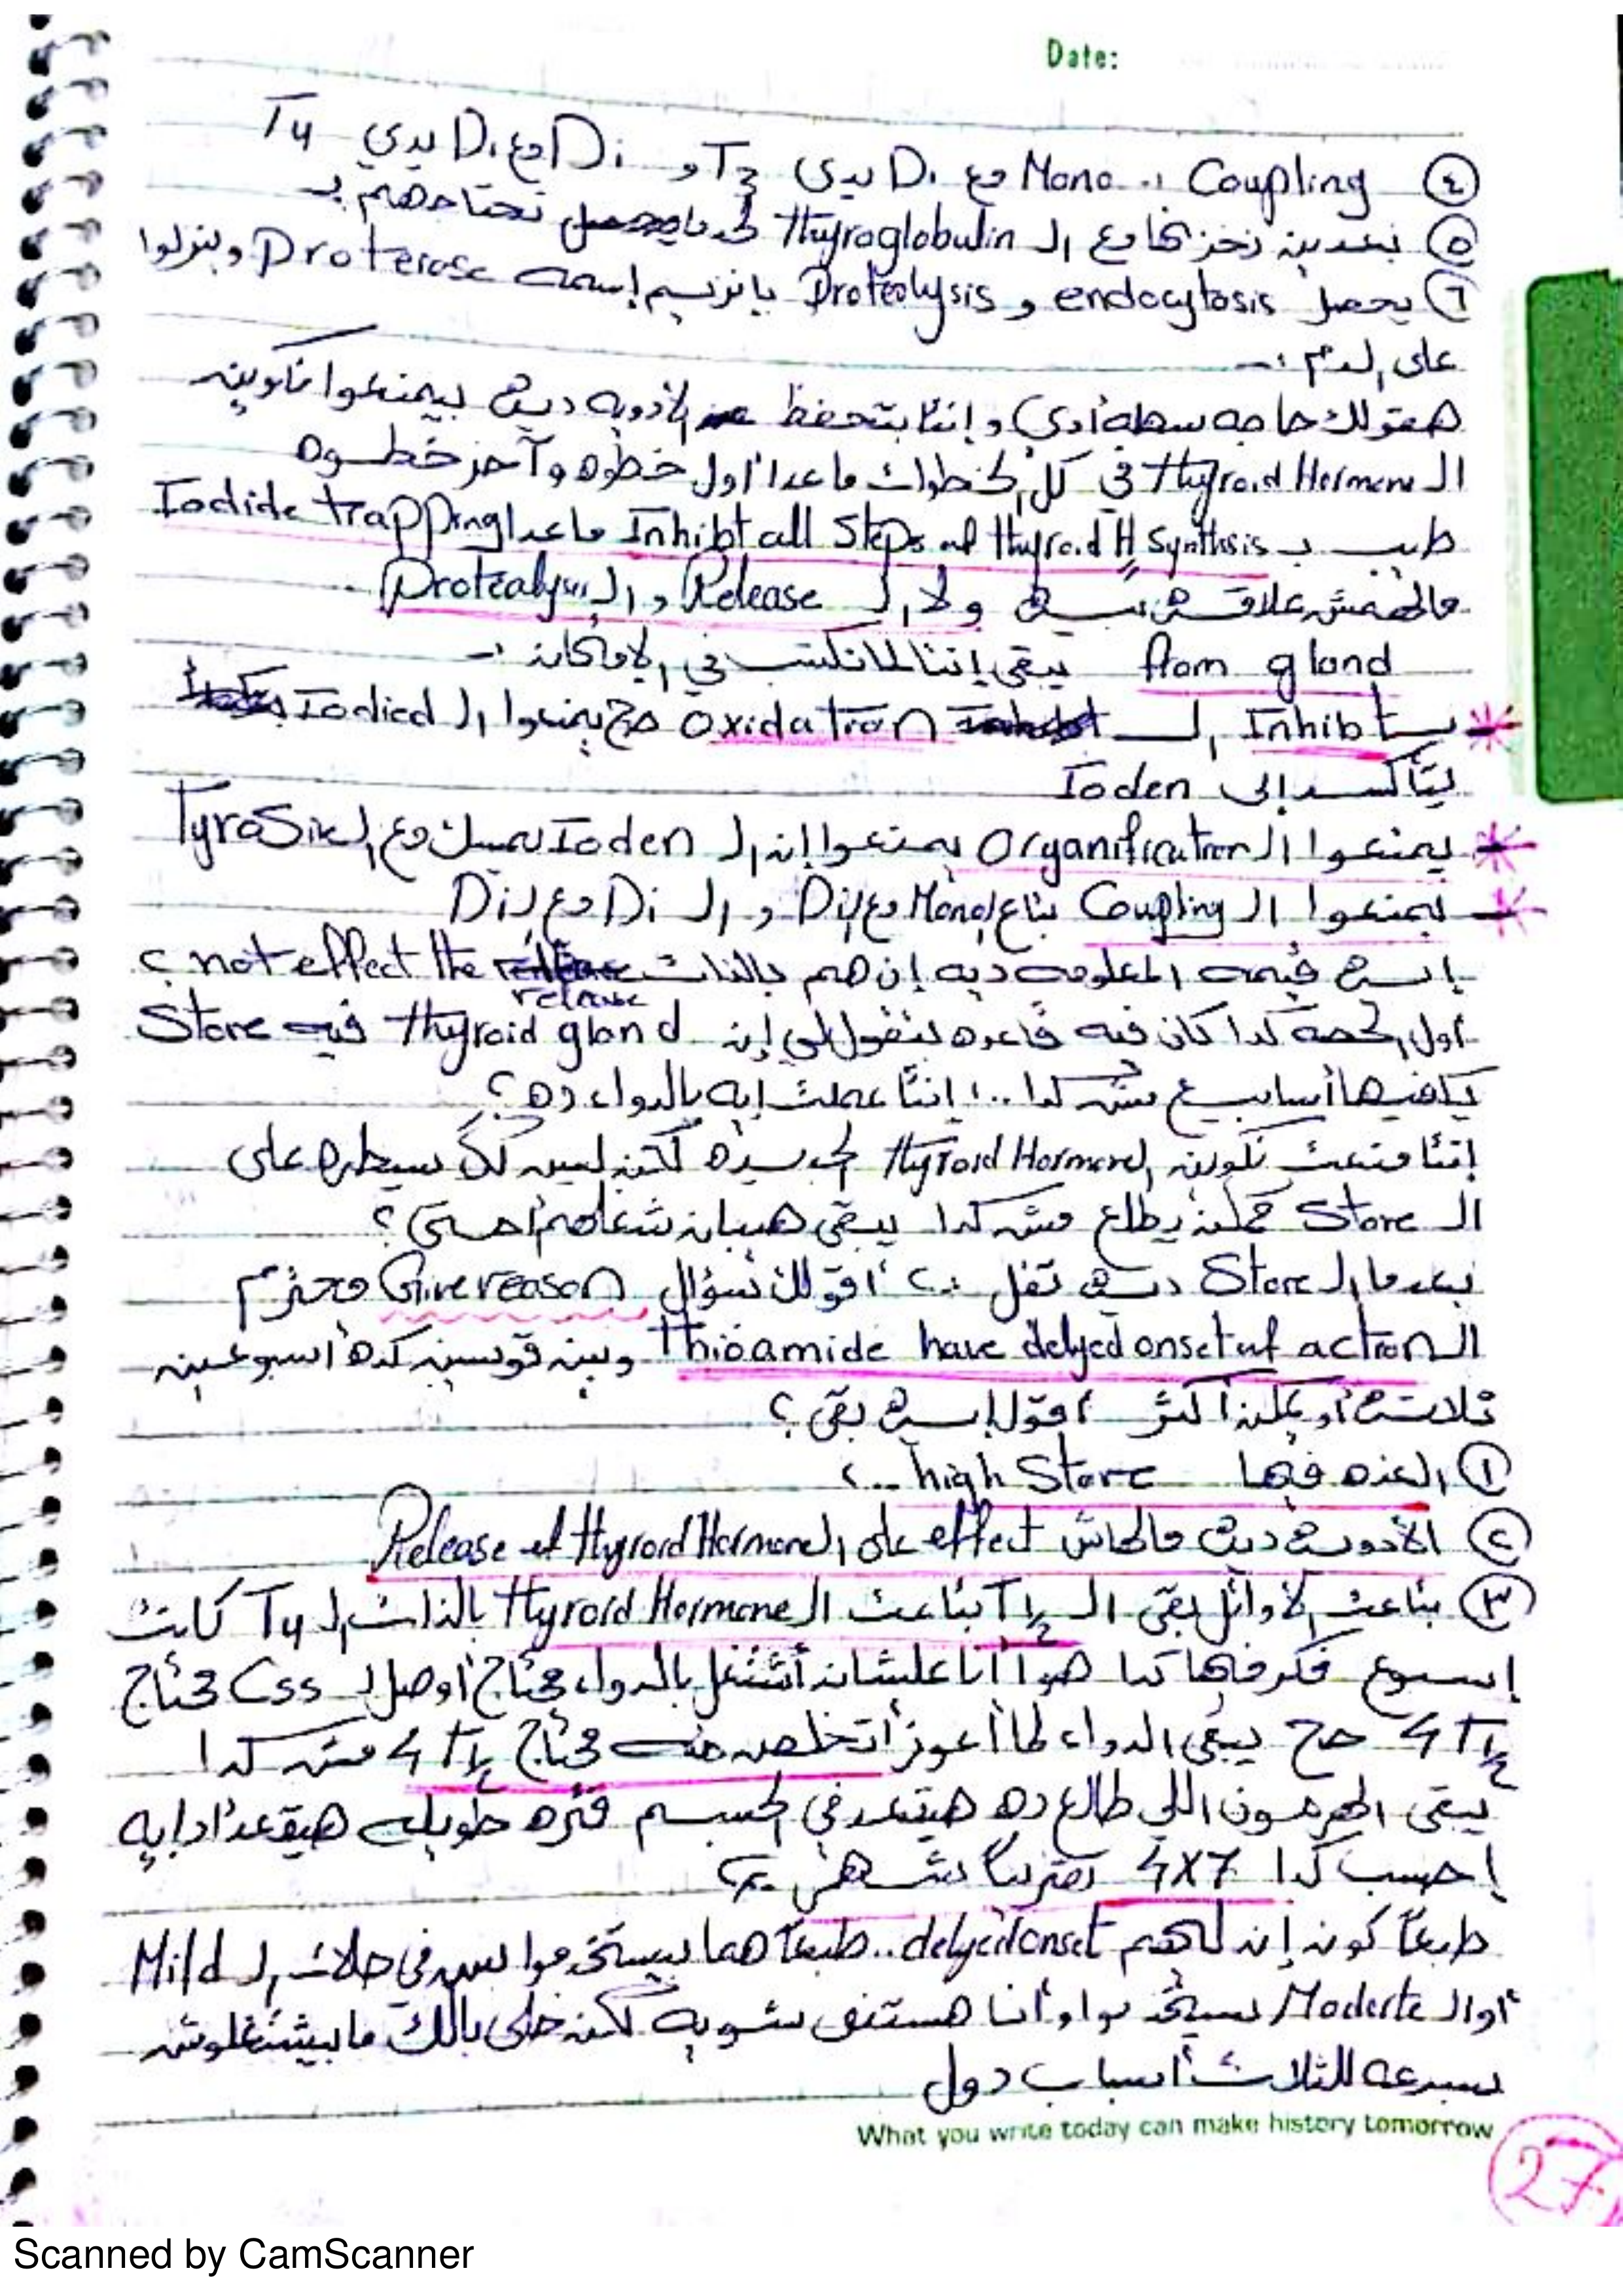 Date:
④ Coupling :. Mono مع Di يدى T3 و Di مع Di يدي T4
⑤ بعدين نخزنها مع الـ Thyroglobulin لحد ما نحتاجهم :ـ
⑥ يحصل endocytosis و Proteolysis بانزيم إسمه Proterase وينزلوا
على الدم :ـ
هقولك حاجه سهله أوي وإنتا بتحفظ الأدويه ديه بيمنعوا تكوين
الـ Thyroid Hormone في كل الخطوات ماعدا أول خطوه وآخر خطوه
طيب بـ Inhibt all Steps of thyroid H synthsis ماعدا Iodide trapping
مالهمش علاقه بيه ولا الـ Release و الـ Protealysis
from gland يبقى إنتا لما تكتب في الإمتحان :ـ
بـ Inhibt الـ Oxidation صح يمنعوا الـ Iodied
يتأكسد إلى Ioden
يمنعوا الـ Organification يمنعوا إن الـ Ioden يمسك مع الـ Tyrosine
يمنعوا الـ Coupling بتاع الـ Mono مع الـ Di و الـ Di مع الـ Di
إيه قيمه المعلومه ديه إن هم بالذات not effect the release ؟
أول الحصه كدا كان فيه قاعده بتقول إن Thyroid gland فيه Store
يكفيها أسابيع مش كدا ..؛ إنتا عملت إيه بالدواء ده ؟
إنتا منعت تكوين الـ Thyroid Hormone الجديده لكن ليس لك سيطره على
الـ Store ممكن يطلع مش كدا يبقى هيبان شغلهم إمتى ؟
بعد ما الـ Store ديه تقل :. ؟ أقولك سؤال Give reason محترم
الـ Thioamide have delyed onset of action وبين قوسين كده أسبوعين
ثلاثه أو يمكن أكثر أقول إيه بقى ؟
① الغده فيها high Store ..؟
② الأدويه ديه مالهاش effect على Release of Thyroid Hormone
③ بتاعت الأوائل بقى الـ T½ بتاعت الـ Thyroid Hormone بالذات الـ T4 كانت
إسبوع فكر فيها كدا هوا أنا علشان أشتغل بالدواء محتاج أوصل لـ Css محتاج
4 T½ صح يبقى الدواء لما أعوز أتخلص منه محتاج 4 T½ مش كدا
يبقى الهرمون اللي طالع ده هيقعد في الجسم فتره طويله هيقعد أد إيه
إحسب كدا 4x7 تقريباً شهر :. ؟
طبعاً كون إن لهم delyed onset .. طبعاً هما بيستخدموا بس في حالات الـ Mild
أو الـ Moderte بيستخدموا وأنا هستنى شويه لكن خلى بالك ما بيشتغلوش
بسرعه للثلاث أسباب دول
What you write today can make history tomorrow
27
Scanned by CamScanner